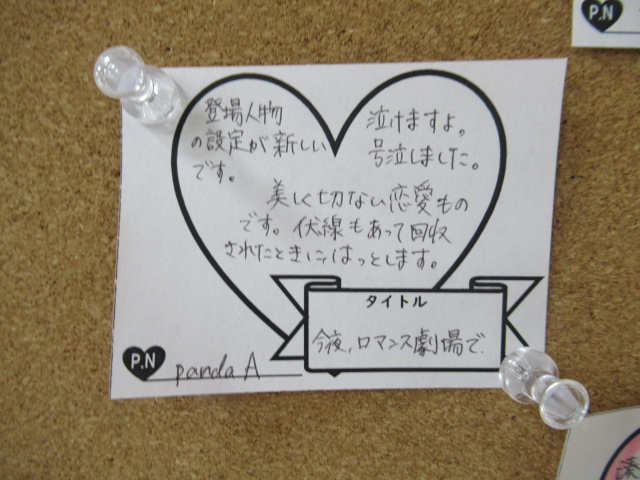 登場人物
の設定が新しい
です。
泣けますよ。
号泣しました。
美しく切ない恋愛もの
です。伏線もあって回収
されたときにはっとします。
タイトル
今夜、ロマンス劇場で
P.N
panda A
P.N